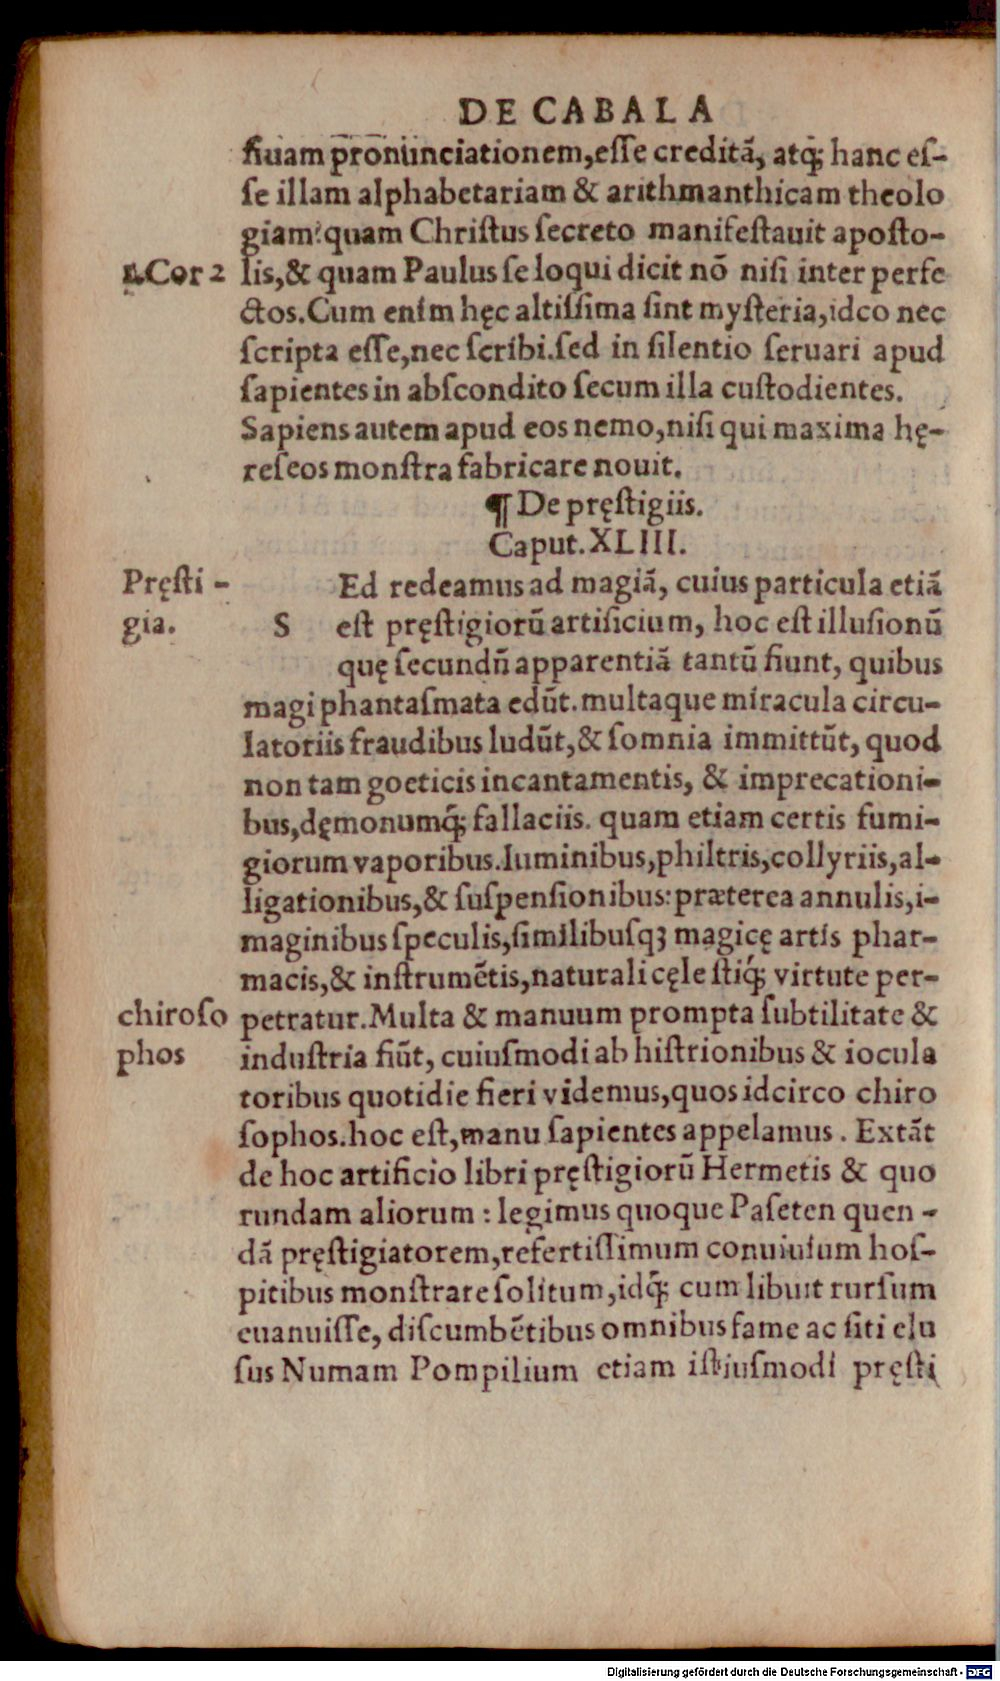 DE CABALA
ſiuam pronunciationem,eſſe creditã, atq; hanc eſ-
ſe illam alphabetariam & arithmanthicam theolo
giam:quam Chriſtus ſecreto manifeſtauit apoſto-
1.Cor 2 lis,& quam Paulus ſe loqui dicit nõ niſi inter perfe
ctos.Cum enim hęc altiſſima ſint myſteria,ideo nec
ſcripta eſſe,nec ſcribi.ſed in ſilentio ſeruari apud
ſapientes in abſcondito ſecum illa cuſtodientes.
Sapiens autem apud eos nemo,niſi qui maxima hę-
reſeos monſtra fabricare nouit.
¶ De pręſtigiis.
Caput. XLIII.
Pręſti-
gia.
SEd redeamus ad magiã, cuius particula etiã
eſt pręſtigiorũ artificium, hoc eſt illuſionũ
quę ſecundũ apparentiã tantũ fiunt, quibus
magi phantaſmata edũt. multaque miracula circu-
latoriis fraudibus ludũt,& ſomnia immittũt, quod
non tam goeticis incantamentis, & imprecationi-
bus,dęmonumq; fallaciis. quam etiam certis fumi-
giorum vaporibus.luminibus,philtris,collyriis,al-
ligationibus,& ſuſpenſionibus: præterea annulis,i-
maginibus ſpeculis,ſimilibuſq; magicę artis phar-
macis,& inſtrumẽtis,naturali cęleſtiq; virtute per-
chiroſo
phos
petratur.Multa & manuum prompta ſubtilitate &
induſtria fiũt, cuiuſmodi ab hiſtrionibus & iocula
toribus quotidie fieri videmus,quos idcirco chiro
ſophos.hoc eſt,manu ſapientes appelamus. Extãt
de hoc artificio libri pręſtigiorũ Hermetis & quo
rundam aliorum : legimus quoque Paſeten quen-
dã pręſtigiatorem,refertiſſimum conuiuium hoſ-
pitibus monſtrare ſolitum,idq; cum libuit rurſum
euanuiſſe, diſcumbẽtibus omnibus fame ac ſiti elu
ſus Numam Pompilium etiam iſtiuſmodi pręſti
Digitalisierung gefördert durch die Deutsche Forschungsgemeinschaft - DFG